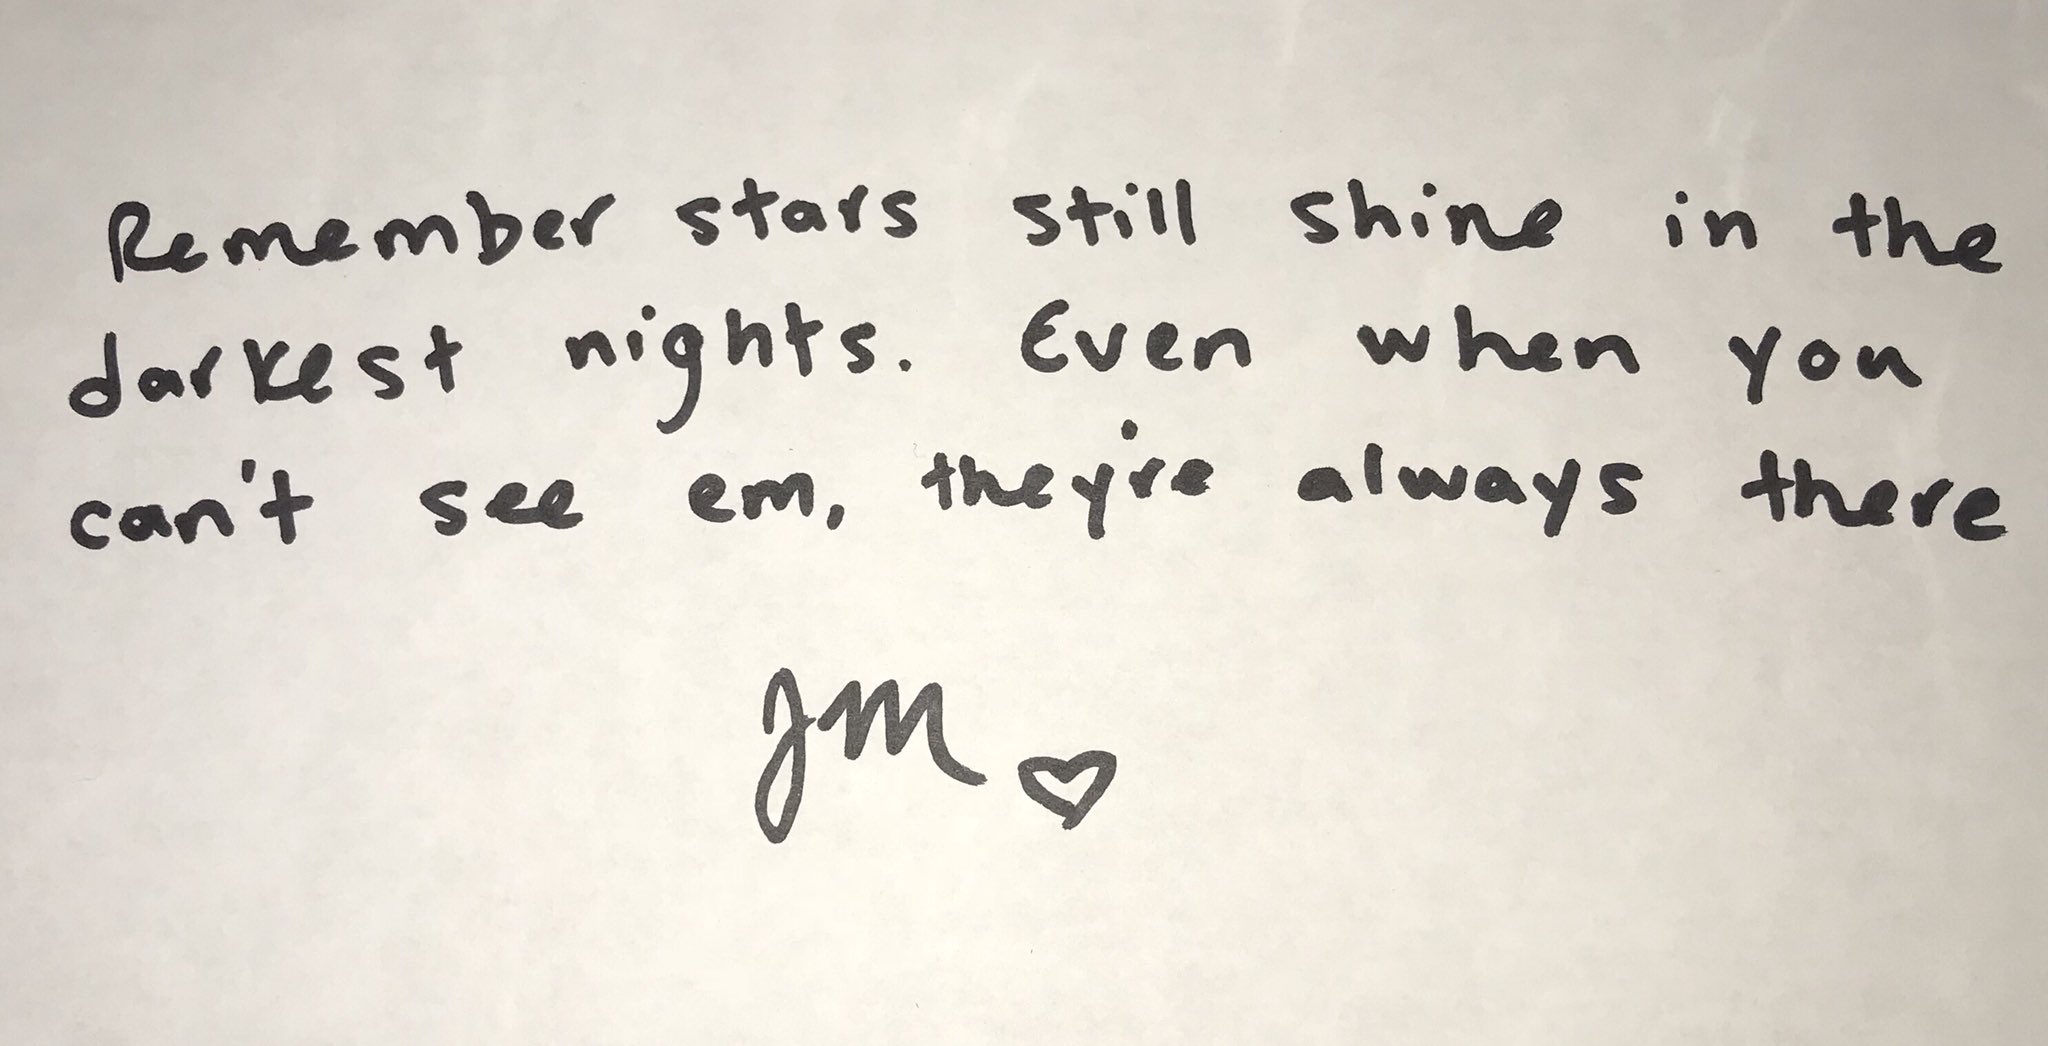 Remember stars still shine in the
darkest nights. Even when you
can't see em, they're always there
JM ♡